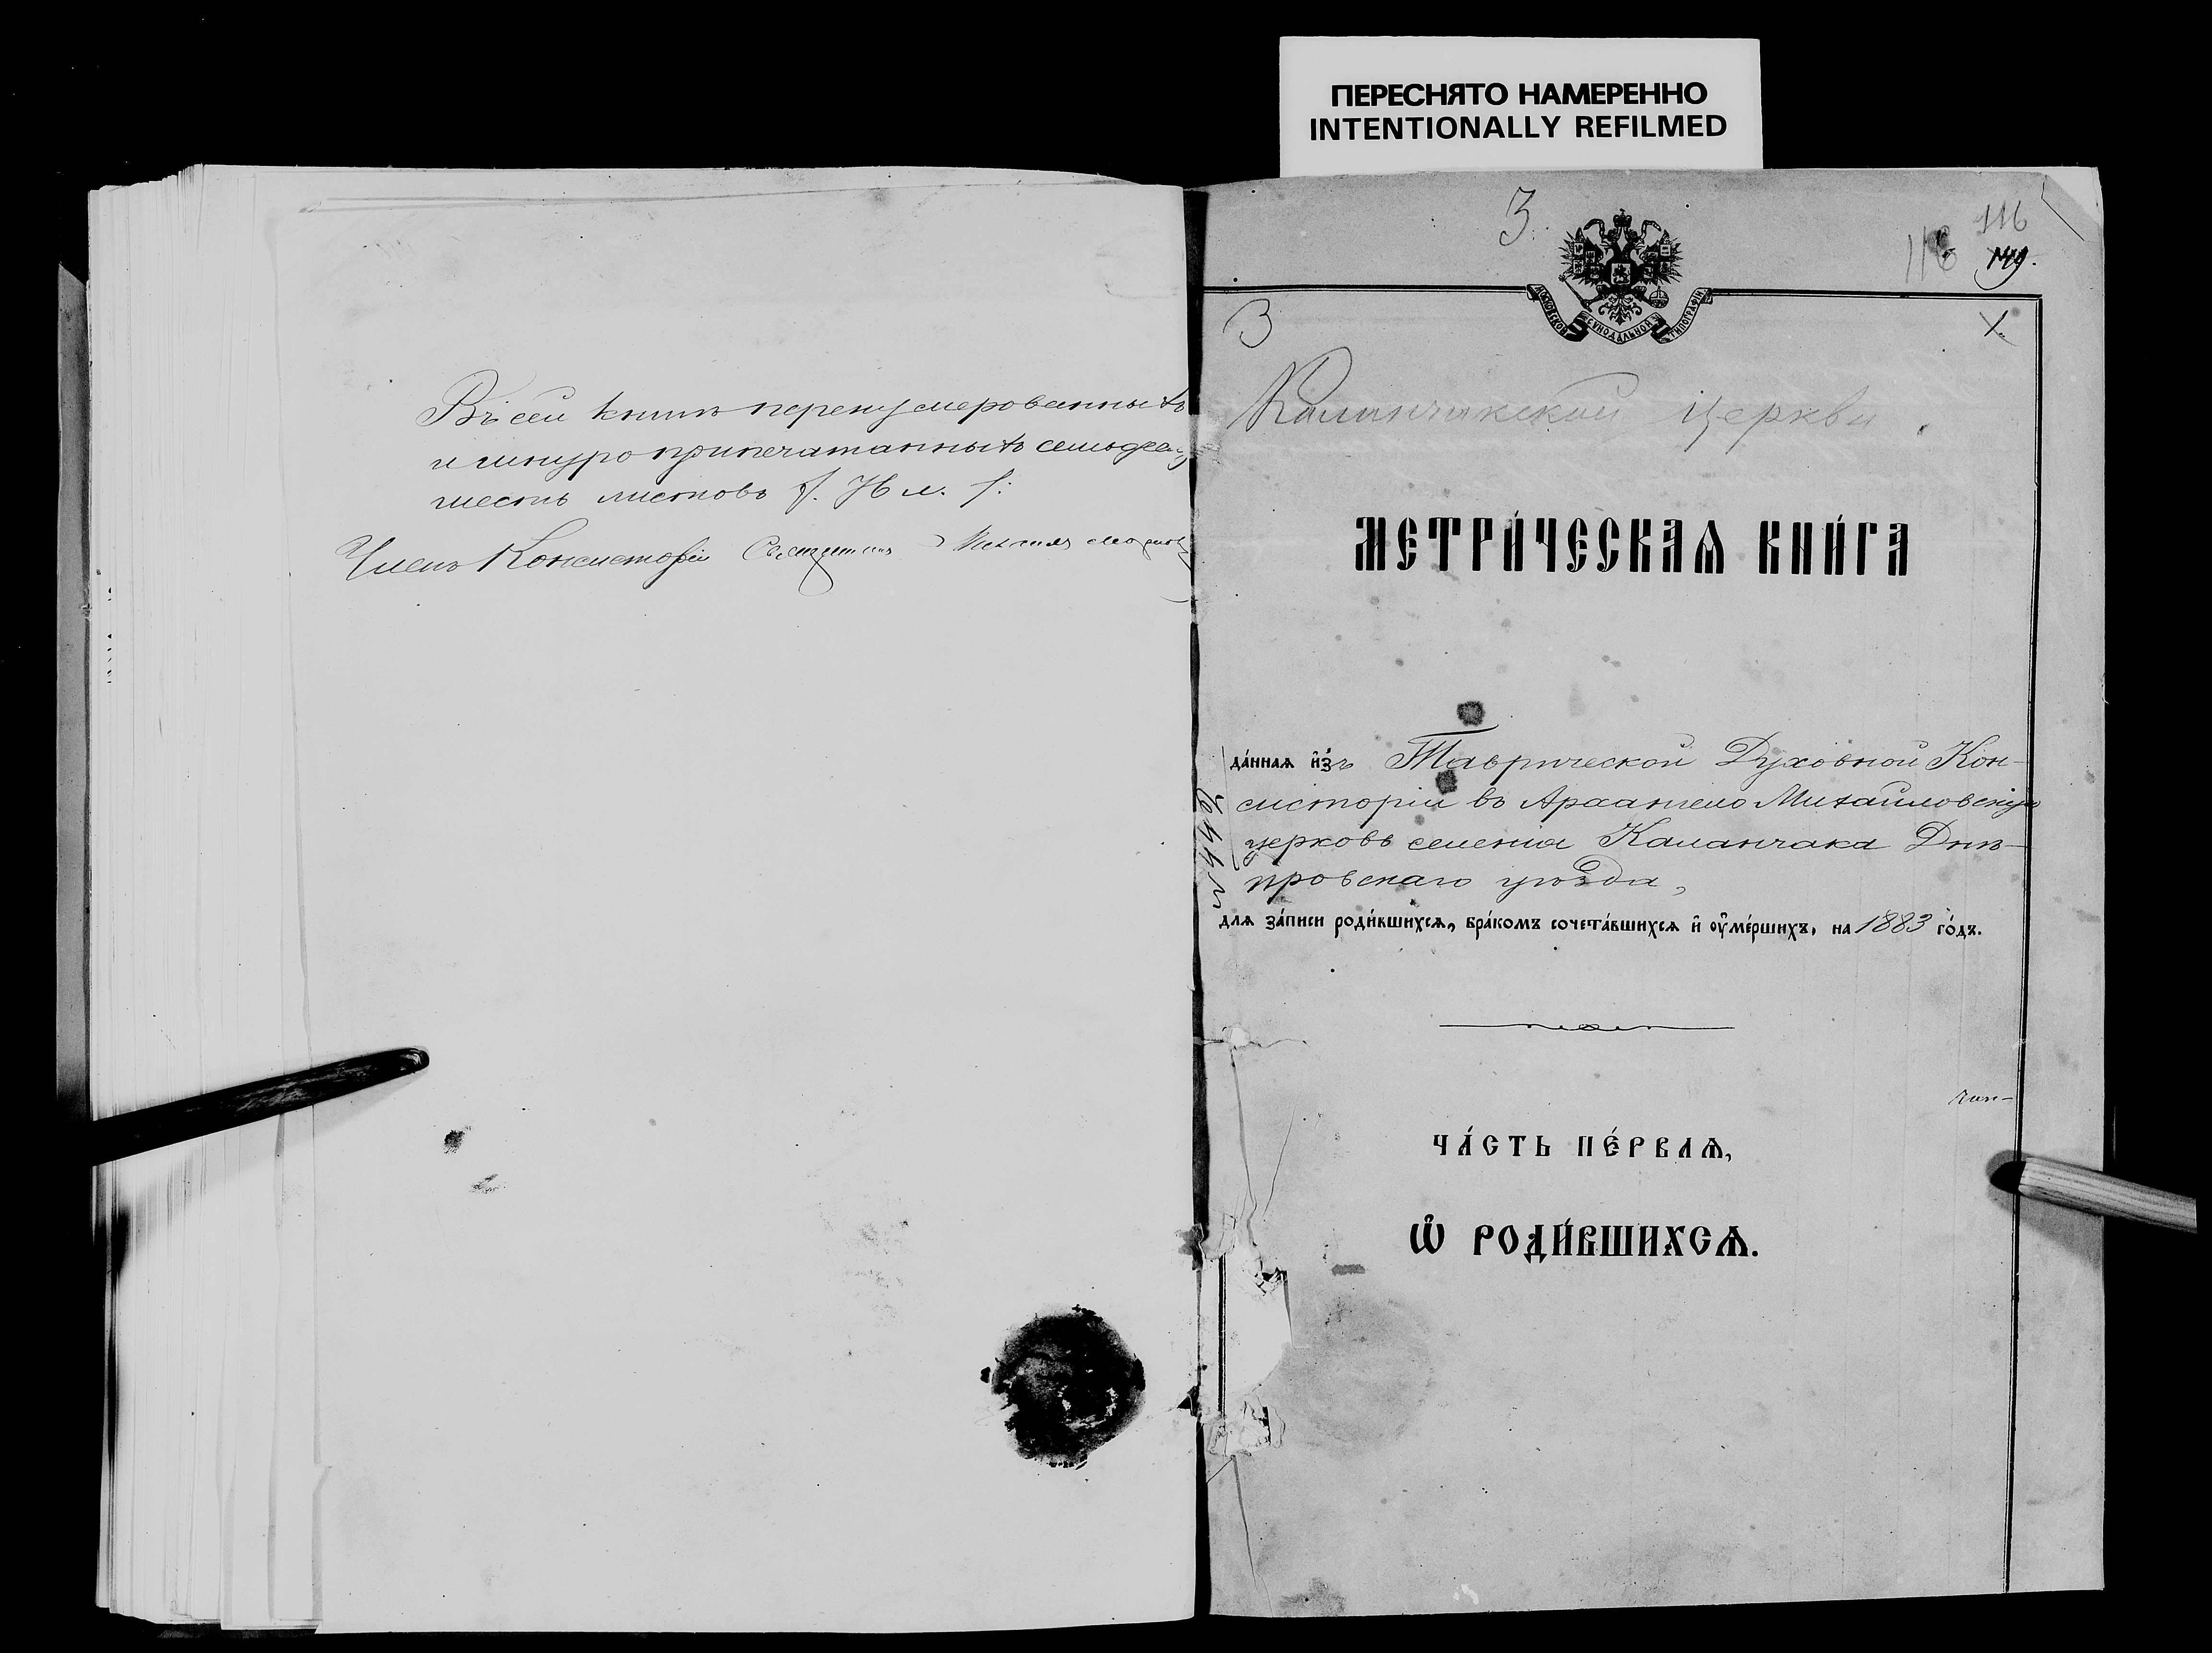 ПЕРЕСНЯТО НАМЕРЕННО
INTENTIONALLY REFILMED
Въ сей книгѣ перенумерованныхъ
и шнуроприпечатанныхъ семьдеся
шесть листовъ
Членъ Консисторіи Священникъ
3.
116
116
149.
МОСКОВСКОЙ СѴНОДАЛЬНОЙ ТИПОГРАФІИ
3
Каланчакской церкви
МЕТРИ́ЧЕСКАѦ КНИ́ГА
да́ннаѧ и҆́зъ Таврической Духовной Кон-
систоріи въ Архангело Михайловскую
церковь селенія Каланчака Днѣ-
провскаго уѣзда,
для за́писи роди́вшихсѧ, бра́комъ сочета́вшихсѧ и҆ ᲂу҆ме́ршихъ, на 1883 го́дъ.
ЧА́СТЬ ПЕ́РВАѦ,
Ѡ҆ РОДИ́ВШИХСѦ.